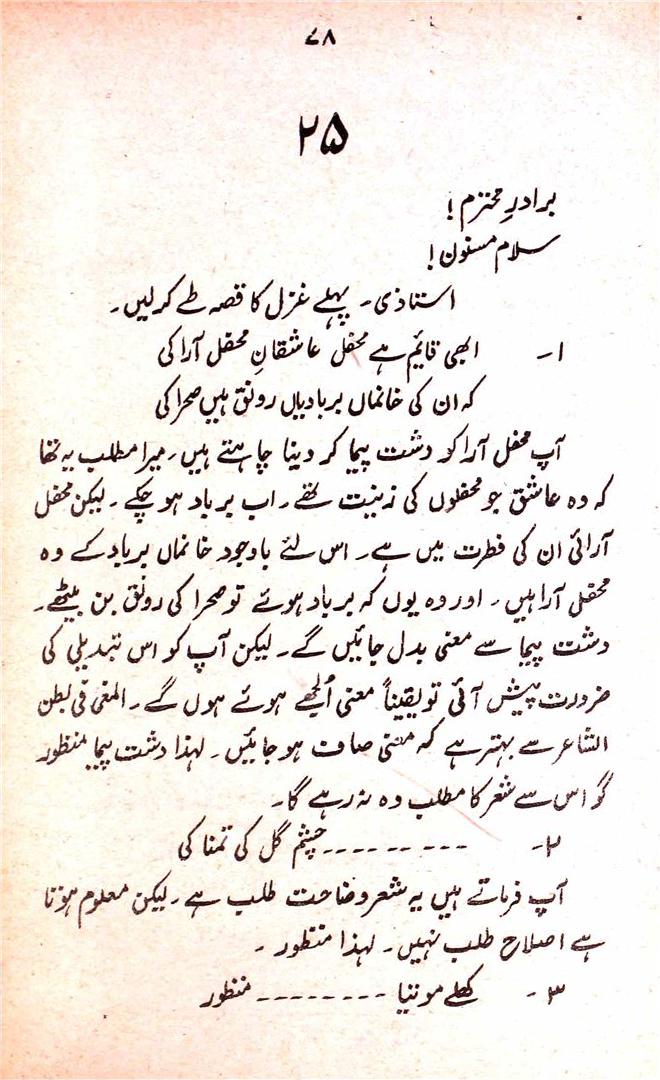 ۷۸
۲۵
برادرِ محترم!
سلام مسنون!
استاذی۔ پہلے غزل کا قصہ طے کر لیں۔
۱۔ ابھی قایم ہے محفل عاشقانِ محفل آرا کی
کہ ان کی خانماں بربادیاں رونق ہیں صحرا کی
آپ محفل آرا کو دشت پیما کر دینا چاہتے ہیں۔ میرا مطلب یہ تھا
کہ وہ عاشق جو محفلوں کی زینت تھے۔ اب برباد ہو چکے۔ لیکن محفل
آرائی ان کی فطرت میں ہے۔ اس لئے باوجود خانماں برباد کے وہ
محفل آرا ہیں۔ اور وہ یوں کہ برباد ہوئے تو صحرا کی رونق بن بیٹھے۔
دشت پیما سے معنی بدل جائیں گے۔ لیکن آپ کو اس تبدیلی کی
ضرورت پیش آئی تو یقیناً معنی اُلجھے ہوئے ہوں گے۔ المعنی فی بطن
الشاعر سے بہتر ہے کہ معنی صاف ہو جائیں۔ لہذا دشت پیما منظور
گو اس سے شعر کا مطلب وہ نہ رہے گا۔
۲۔ ۔۔۔ ۔۔ ۔۔۔۔۔ چشم گل کی تمنا کی
آپ فرماتے ہیں یہ شعر وضاحت طلب ہے۔ لیکن معلوم ہوتا
ہے اصلاح طلب نہیں۔ لہذا منظور ۔
۳۔ کھلے موتیا ۔۔۔۔۔۔۔۔ منظور